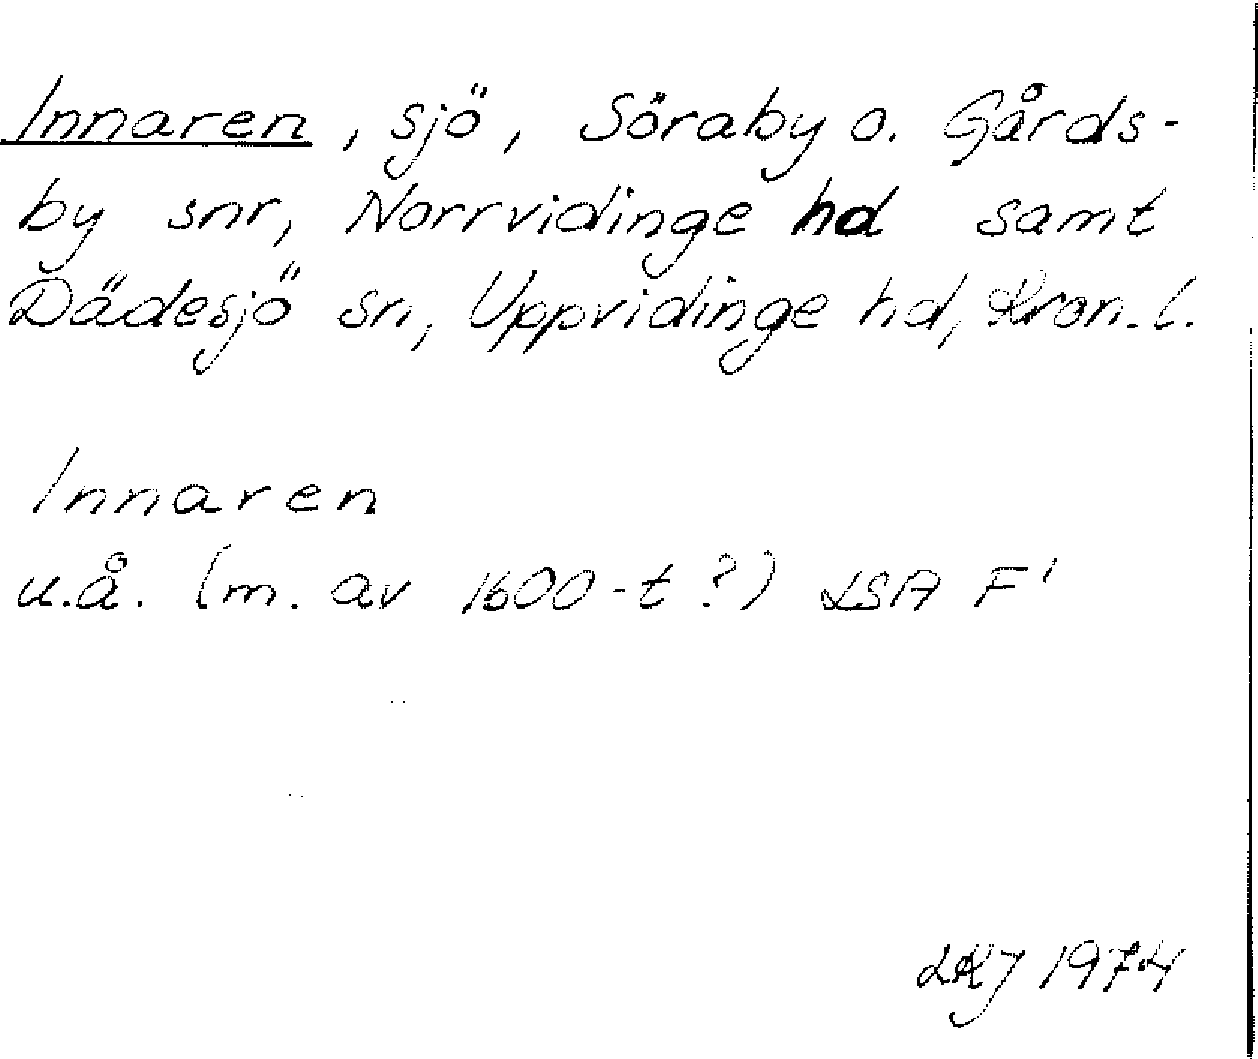 Innaren, sjö, Söraby o. Gårds-
by snr, Norrvidinge hd samt
Dädesjö sn, Uppvidinge hd, Kron. l.
Innaren
u.å. (m. av 1600-t?) LSA F'
LKJ 1974